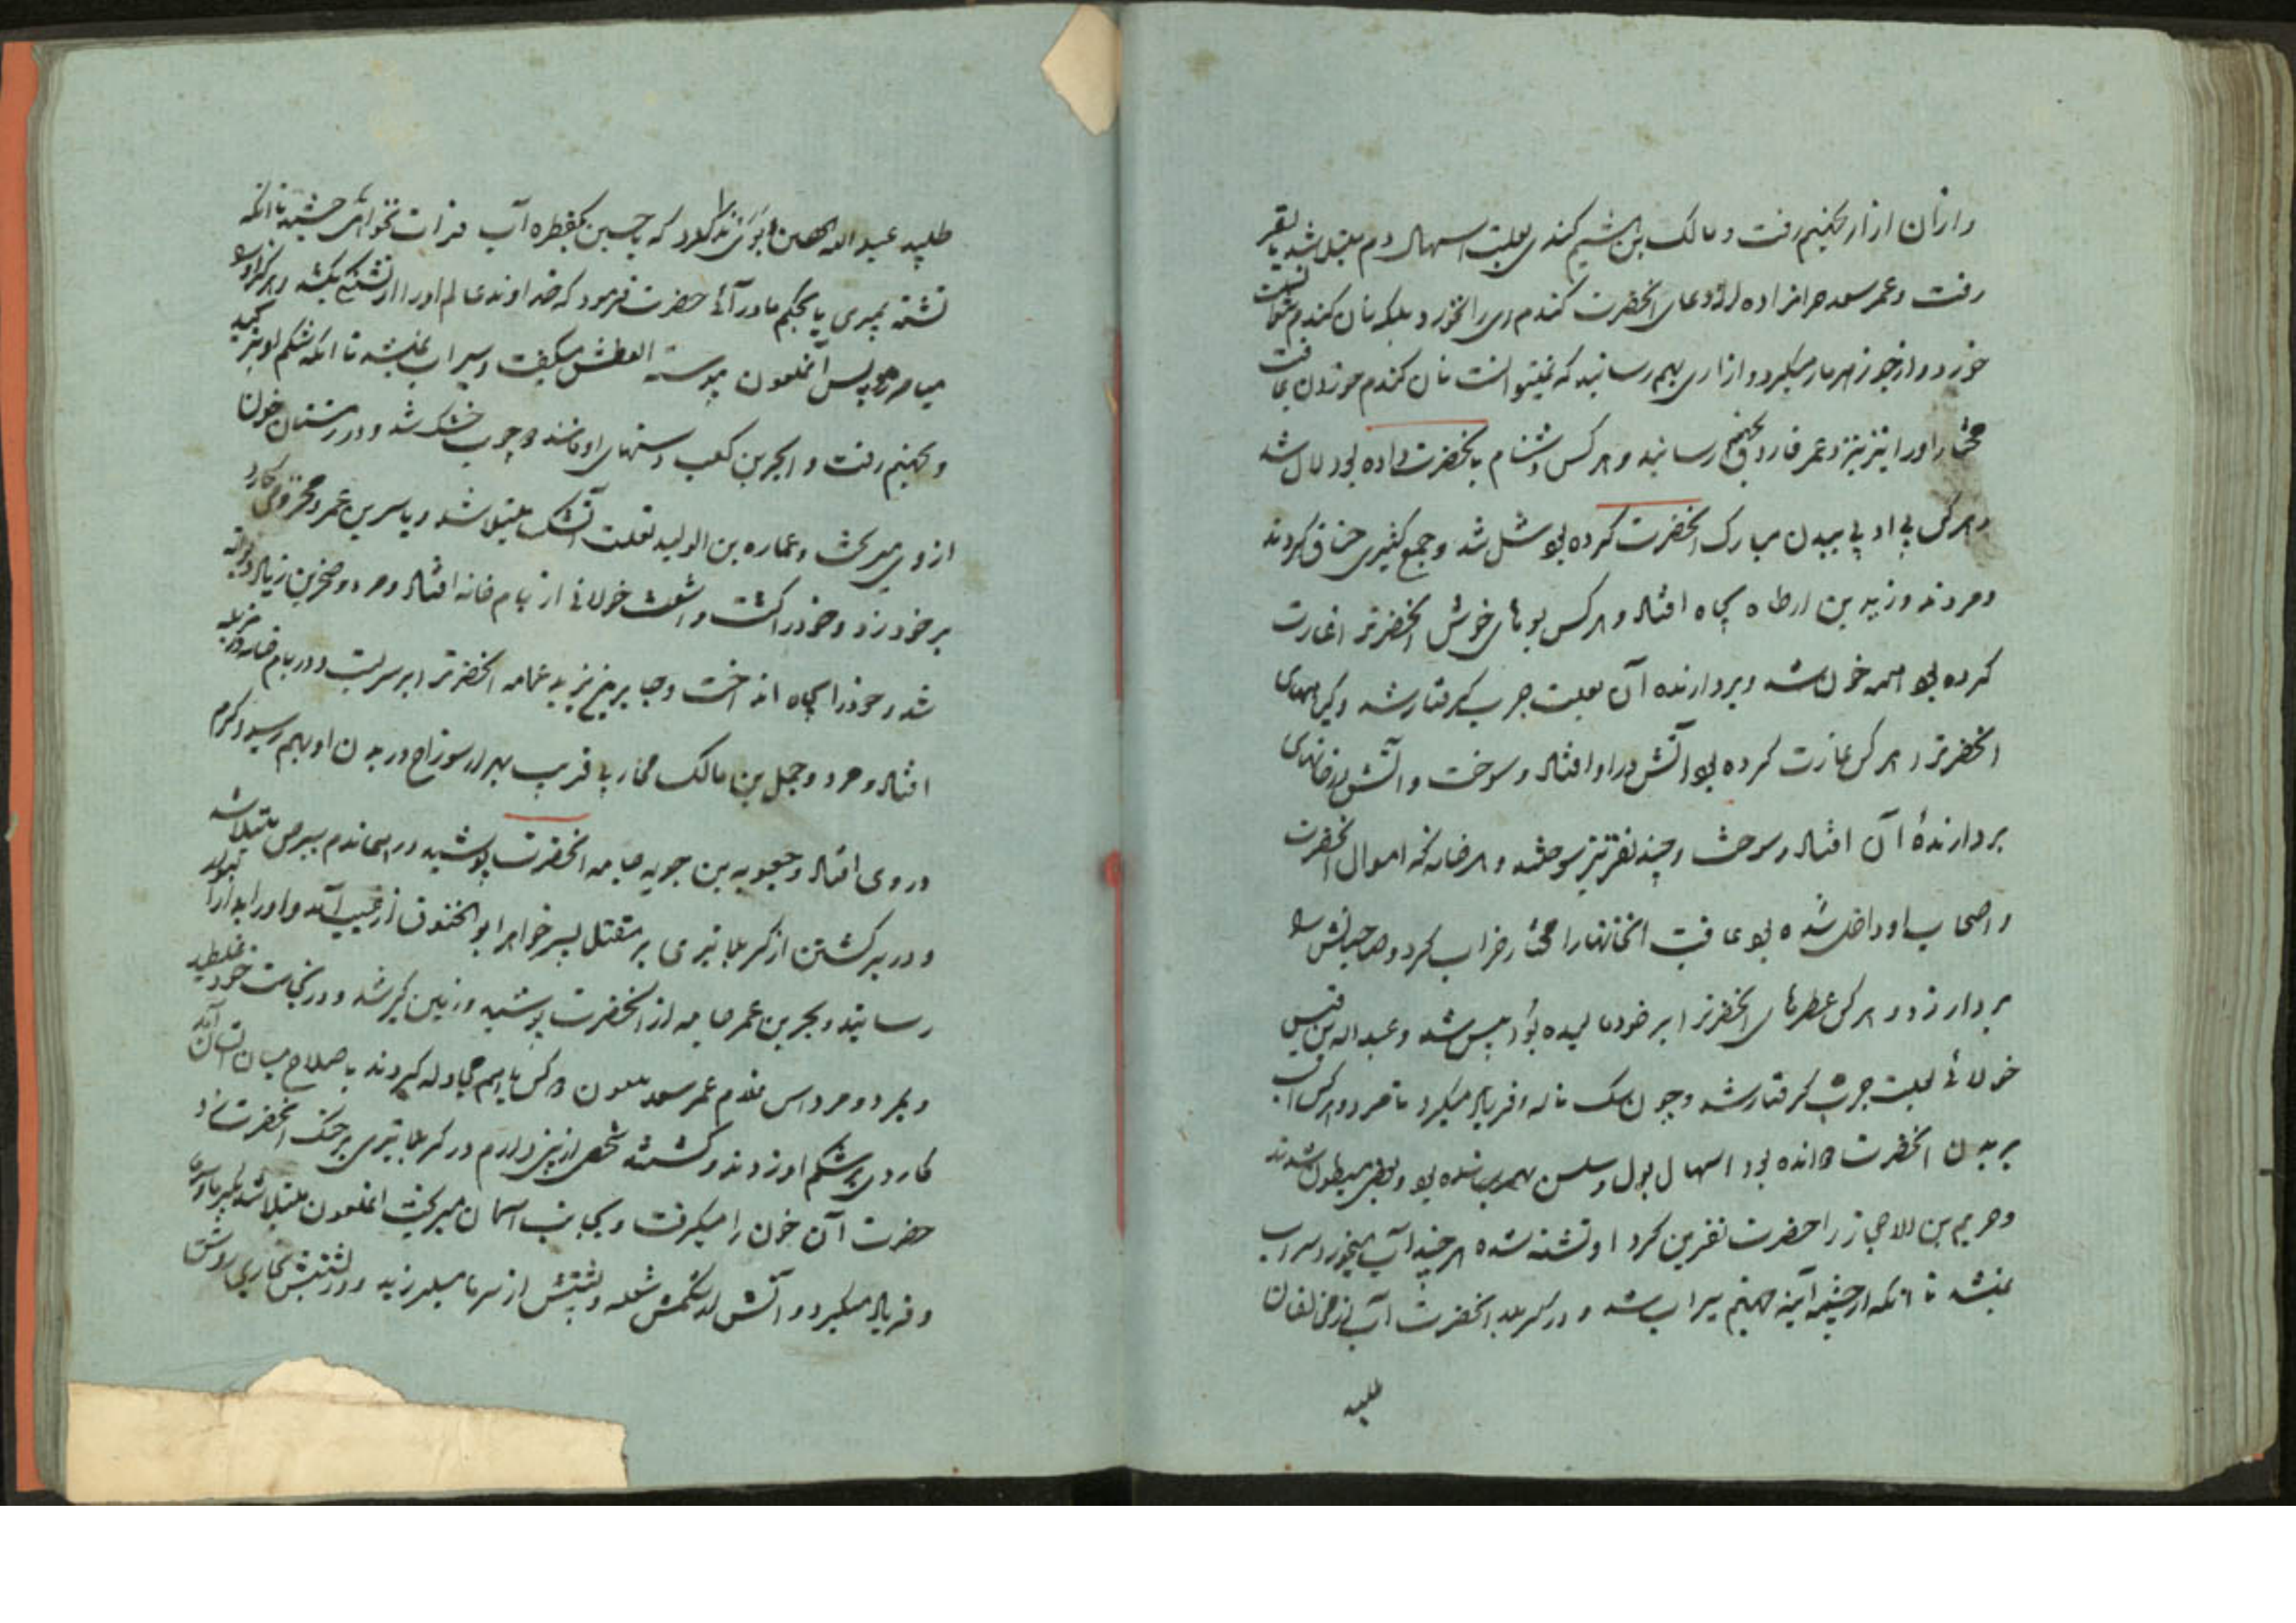 وازان ازار بجهنم رفت و مالک بن هشیم کندی بعلت اسهال دم مبتلا شد بسقر
رفت و عمر سعد حرامزاده از دعای انحضرت کندم ری را نخورد بلکه نان کندم
خورد و از جو زهرمار میکرد و ازاری بهم رسانید که نمیتوانست نان کندم خوردن عاقبت
او را نیز بنزد عمر فاروق بجهنم رسانید و هر کس دشنام بانحضرت داده بود لال شد
و هر کس بی ادبی ببدن مبارک انحضرت کرده بود شل شد و جمع کثیری خناق کردند
و مردند و زید بن ارطاه بچاه افتاد و هر کس بوهای خوش انحضرترا غارت
کرده بود همه خون شد و بردارنده آن بعلت جرب گرفتار شد و
انحضرترا هر کس غارت کرده بود آتش در او افتاد و سوخت و آتش در خانهای
بردارندهٔ آن افتاد و سوخت و چند نفر نیز سوختند و هر خانه که اموال انحضرت
و اصحاب او داخل شده بود عاقبت انخانهارا رخراب کرد و صاحبانش
بردار زد و هر کس عطرهای انحضرترا بر خود مالیده بود پیس شد و عبداله بن قیس
خولانی بعلت جرب گرفتار شد و چون سک ناله و فریاد میکرد تا مرد و هر کس اسب
بر بدن انحضرت دوانده بود اسهال بول و سلس بهم رسانده بود و بعضی مبطول شدند
و را حضرت نفرین کرد او تشنه شده هر چند آب میخورد سیراب
نمیشد تا انکه از چشمه آنیه جهنم سیراب شد و در کربلا انحضرت آب از مخالفان
طلبید
طلبید عبد اله حصین که یا حسین یکقطره آب فرات نخواهی چشید تا انکه
تشنه بمیری یا بحکم ما در آئی حضرت فرمود که خداوند عالم او را از تشنکی بکشد و هرکز او را
میامرزد پس آنملعون پیوسته العطش میکفت و سیراب نمیشد تا انکه شکم او
و بجهنم رفت و ابجر بن کعب دستهای او مانند چوب خشک شد و در زمستان خون
از وی میریخت و عماره بن الولید بعلت آتشک مبتلا شد و یاسر بن عمرو کارد
بر خود زد و خود را کشت و اشعث خولانی از بام خانه افتاد و مرد و صخر بن زیاد دیوانه
شد و خود را بچاه انداخت و جابر بن یزید عمامه انحضرترا بر سر بست و در بام خانه
افتاد و مرد و جمیل بن مالک محاربی قریب بهزار سوراخ در بدن او بهم رسید و کرم
در وی افتاد و جعوبه بن حویه جامه انحضرت پوشید در همان دم ببرص مبتلا شد
و در برکشتن از کربلا تیری بر مقتل پسر خواهر ابو الخنوق از غیب آمد و او را
رسانید و بجر بن عمر جامه از انحضرت پوشید و زمین گیر شد و در نجاست خود غلطید
و بمرد و مرداس مقدم عمر سعد ملعون و کس باهم مجادله کردند باصلاح میان ایشان آمد
کاردی بر شکم او زدند و کشته شد شخصی از بنی دارم در کربلا تیری بر حنک انحضرت زد
حضرت آن خون را میکرفت و بجانب آسمان میریخت انملعون مبتلا شد
و فریاد میکرد و آتش از شکمش شعله و پشتش از سرما میلرزید و در پشتش بخاری روشن